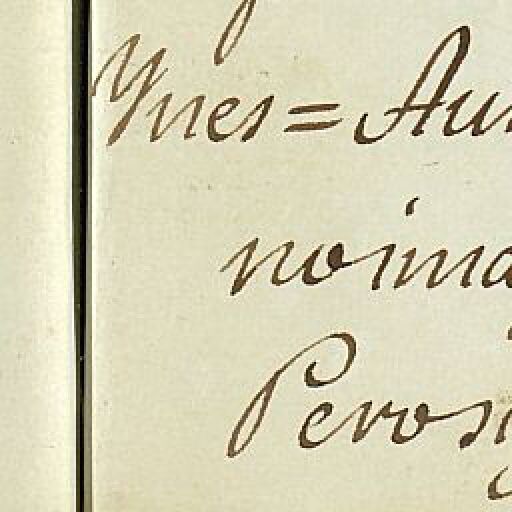 Ynes = Au
noima
Peros